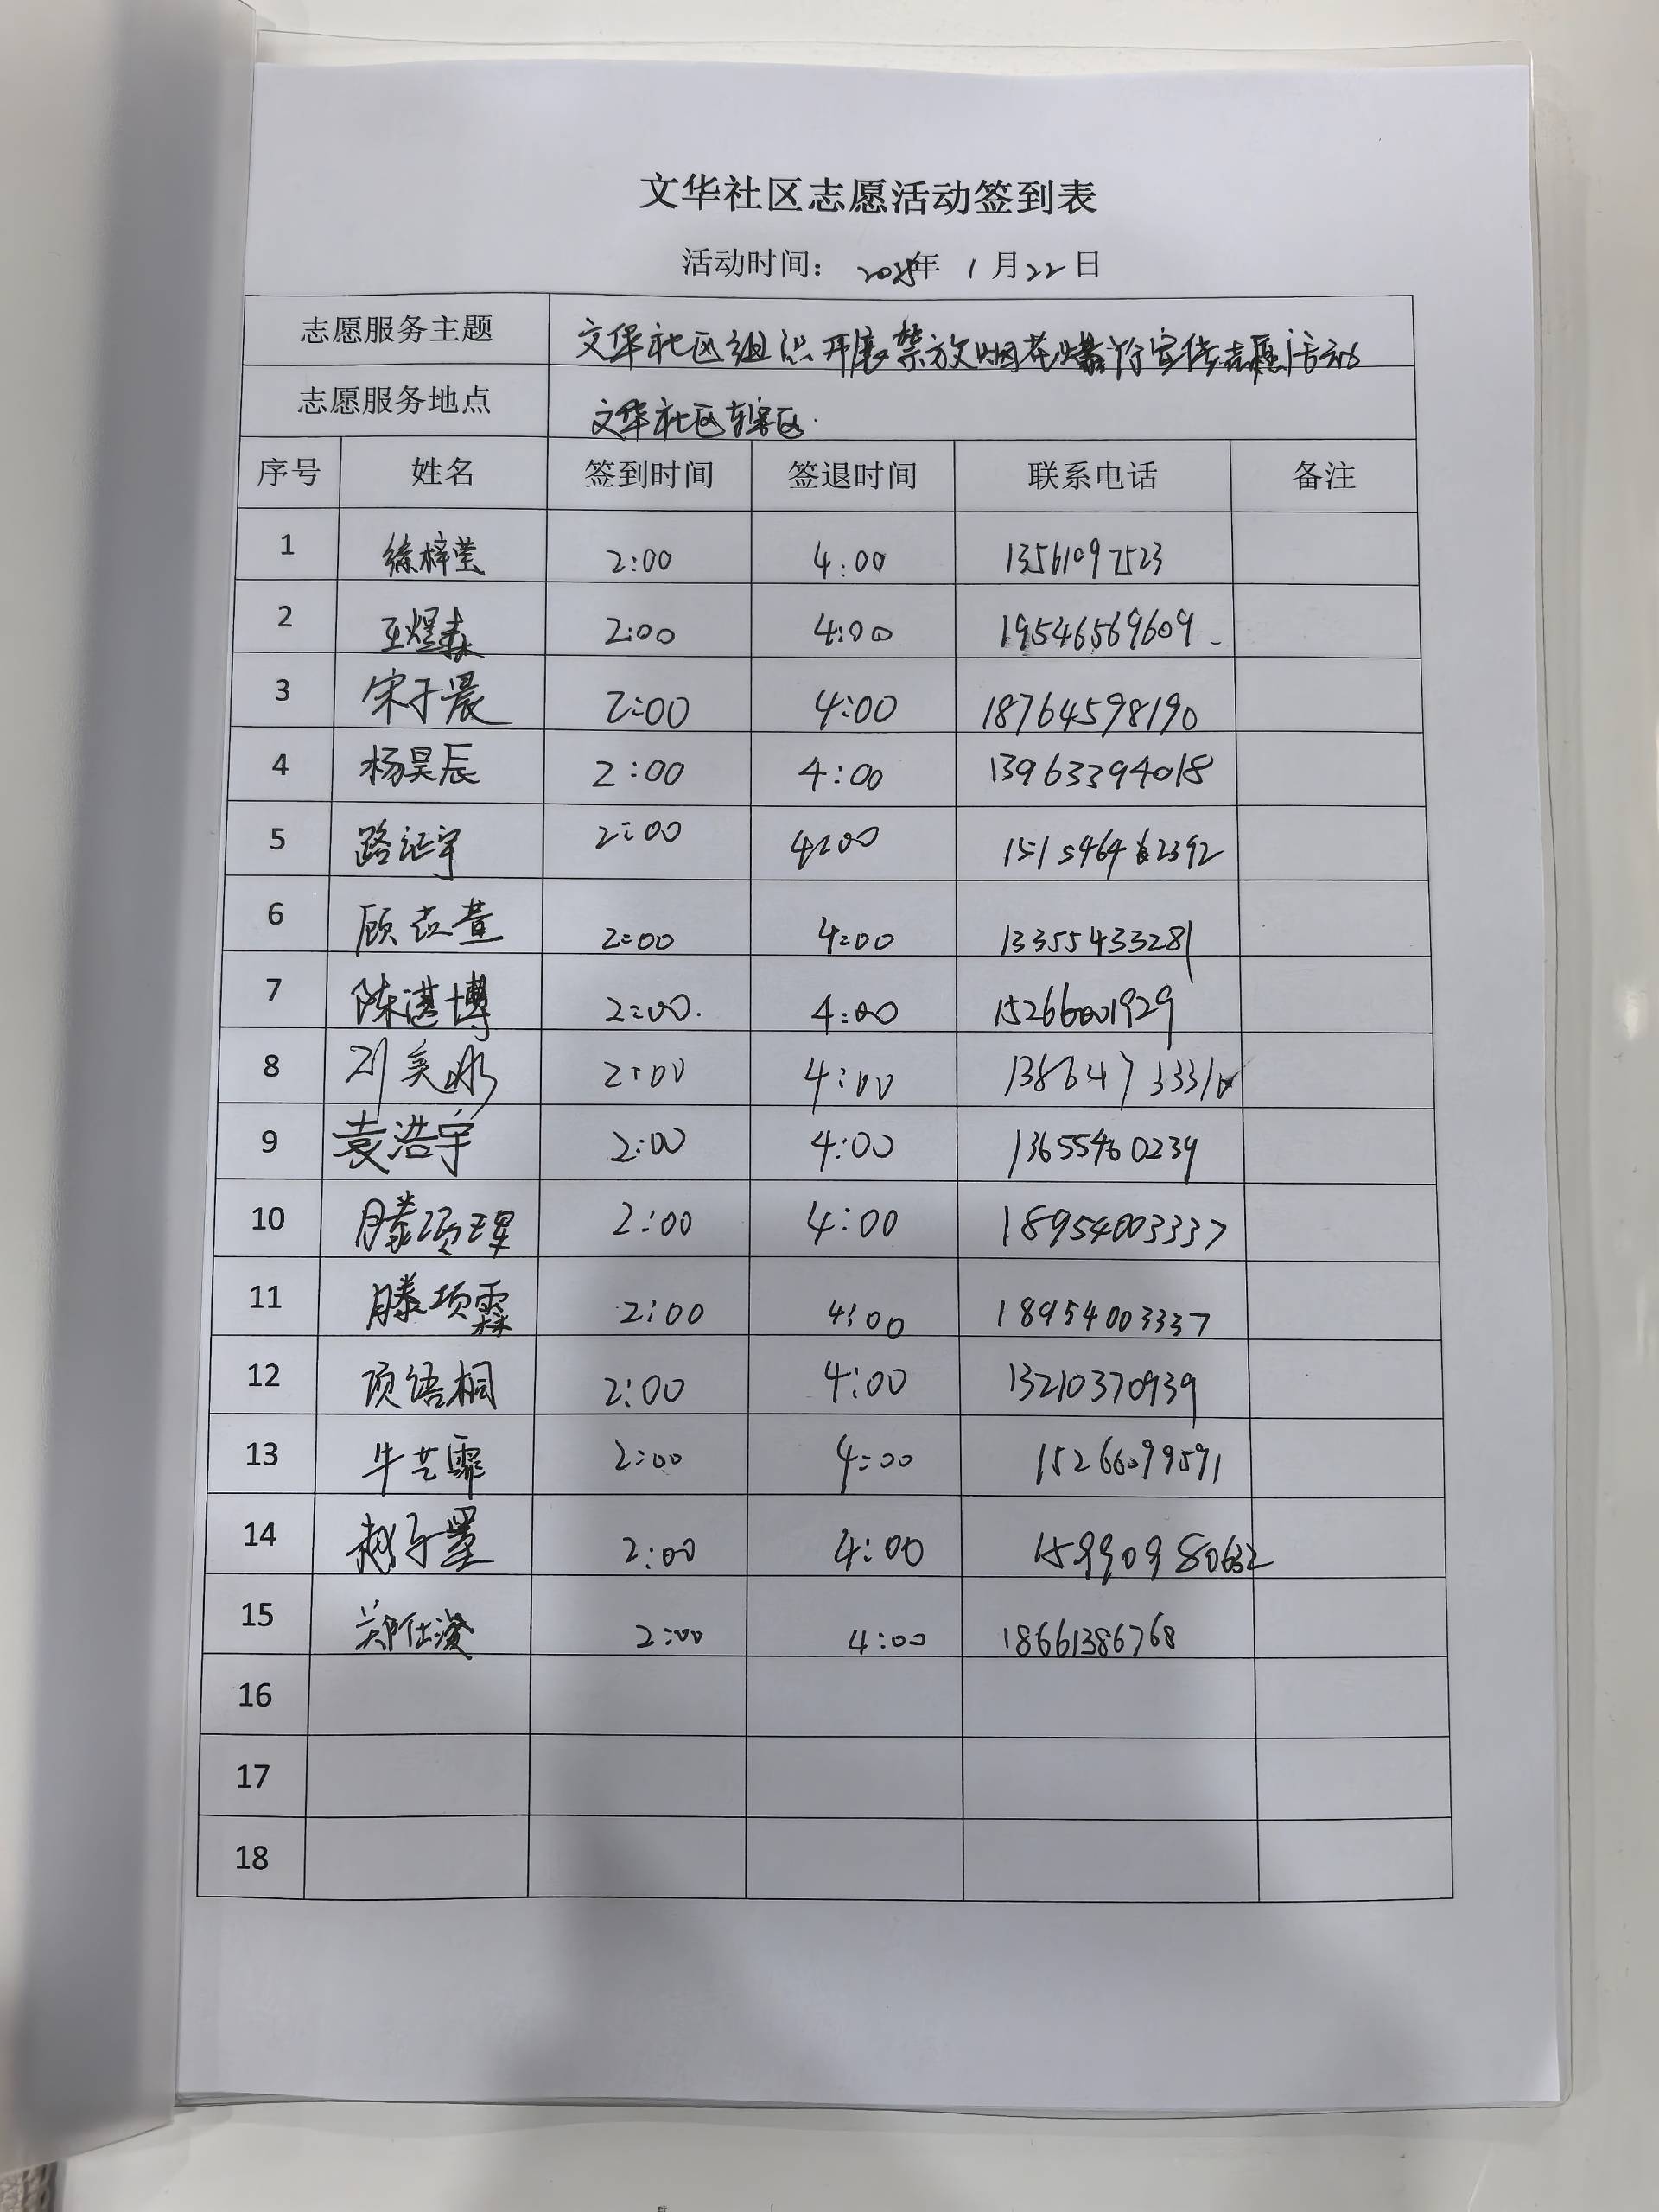 文华社区志愿活动签到表
活动时间： 2025年 1 月 22 日
志愿服务主题 文华社区组织开展禁放烟花爆竹宣传志愿活动
志愿服务地点 文华社区辖区.
序号 姓名 签到时间 签退时间 联系电话 备注
1 徐梓莹 2:00 4:00 13561097523
2 王煜森 2:00 4:00 19546569609
3 宋子晨 2:00 4:00 18764598190
4 杨昊辰 2:00 4:00 13963394018
5 路证宇 2:00 4:00 15154642392
6 2:00 4:00 13355433281
7 陈湛博 2:00. 4:00 15266001929
8 2:00 4:00
9 袁浩宇 2:00 4:00 13655460239
10 滕项珲 2:00 4:00 18954003337
11 滕项霖 2:00 4:00 18954003337
12 项语桐 2:00 4:00 13210370939
13 牛艺霏 2:00 4:00 15266099591
14 赵子墨 2:00 4:00
15 郑仕浚 2:00 4:00 18661386768
16
17
18